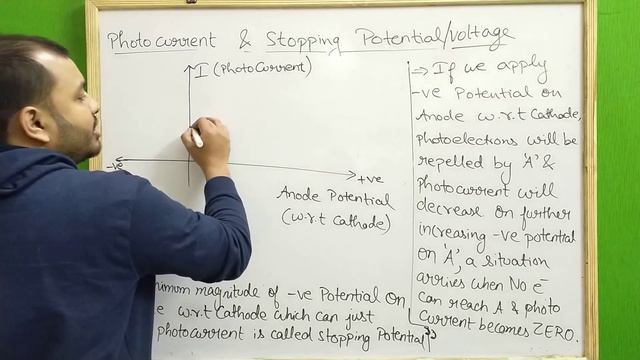 Photocurrent & Stopping Potential/Voltage
I (Photocurrent)
-ve
+ve
Anode Potential
(w.r.t Cathode)
→ If we apply
-ve Potential on
Anode w.r.t Cathode,
photoelections will be
repelled by 'A' &
Photocurrent will
decrease on further
increasing -ve potential
on 'A', a situation
arrives when No e-
can reach A & photo
current becomes ZERO.
magnitude of -ve Potential on
w.r.t Cathode which can just
photocurrent is called Stopping Potential